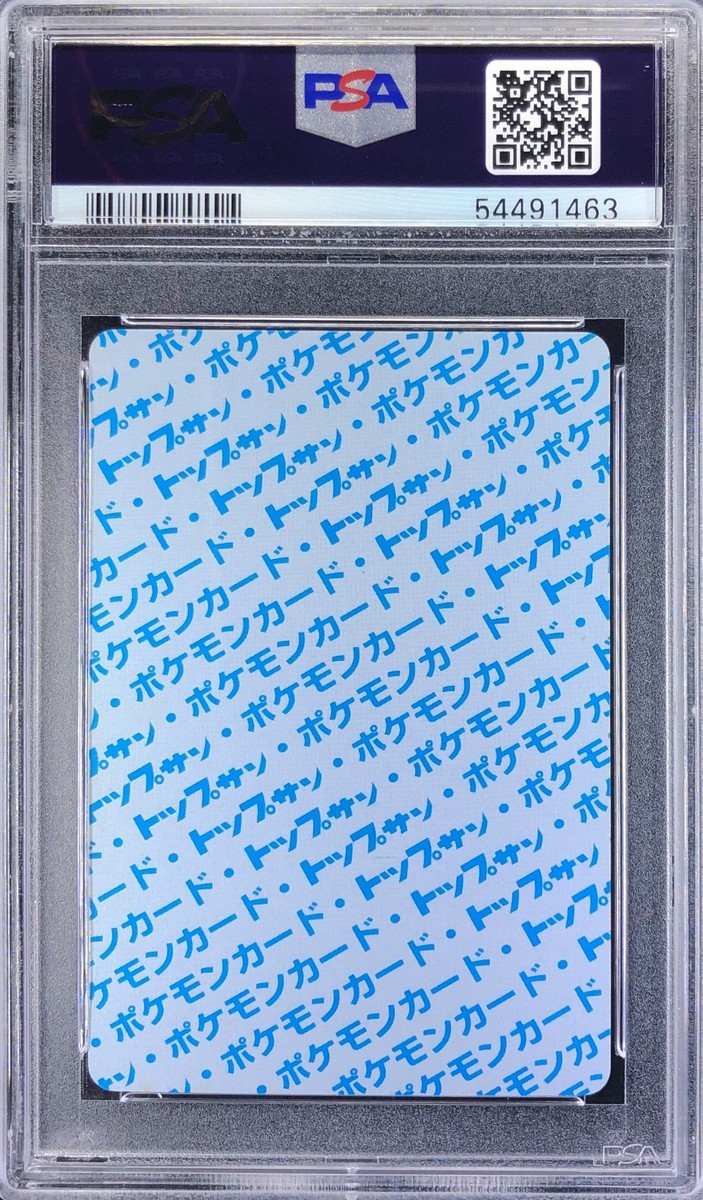 PSA
PSA
54491463
ン・ポケ
プサン・ポケモ
トップサン・ポケモ
ド・トップサン・ポケモン
カード・トップサン・ポケモンカ
モンカード・トップサン・ポケモンカー
ポケモンカード・トップサン・ポケモン
・ポケモンカード・トップサン・ポケモ
ン・ポケモンカード・トップサン・
プサン・ポケモンカード・トップサン
トップサン・ポケモンカード・トップ
・トップサン・ポケモンカード・ト
ド・トップサン・ポケモンカード
ード・トップサン・ポケモンカ
ンカード・トップサン・ポケモ
ケモンカード・トップサン・ポ
・ポケモンカード・トップサン
ン・ポケモンカード・トップ
・ポケモンカード・ト
ポケモンカード
ケモンカー
PSA